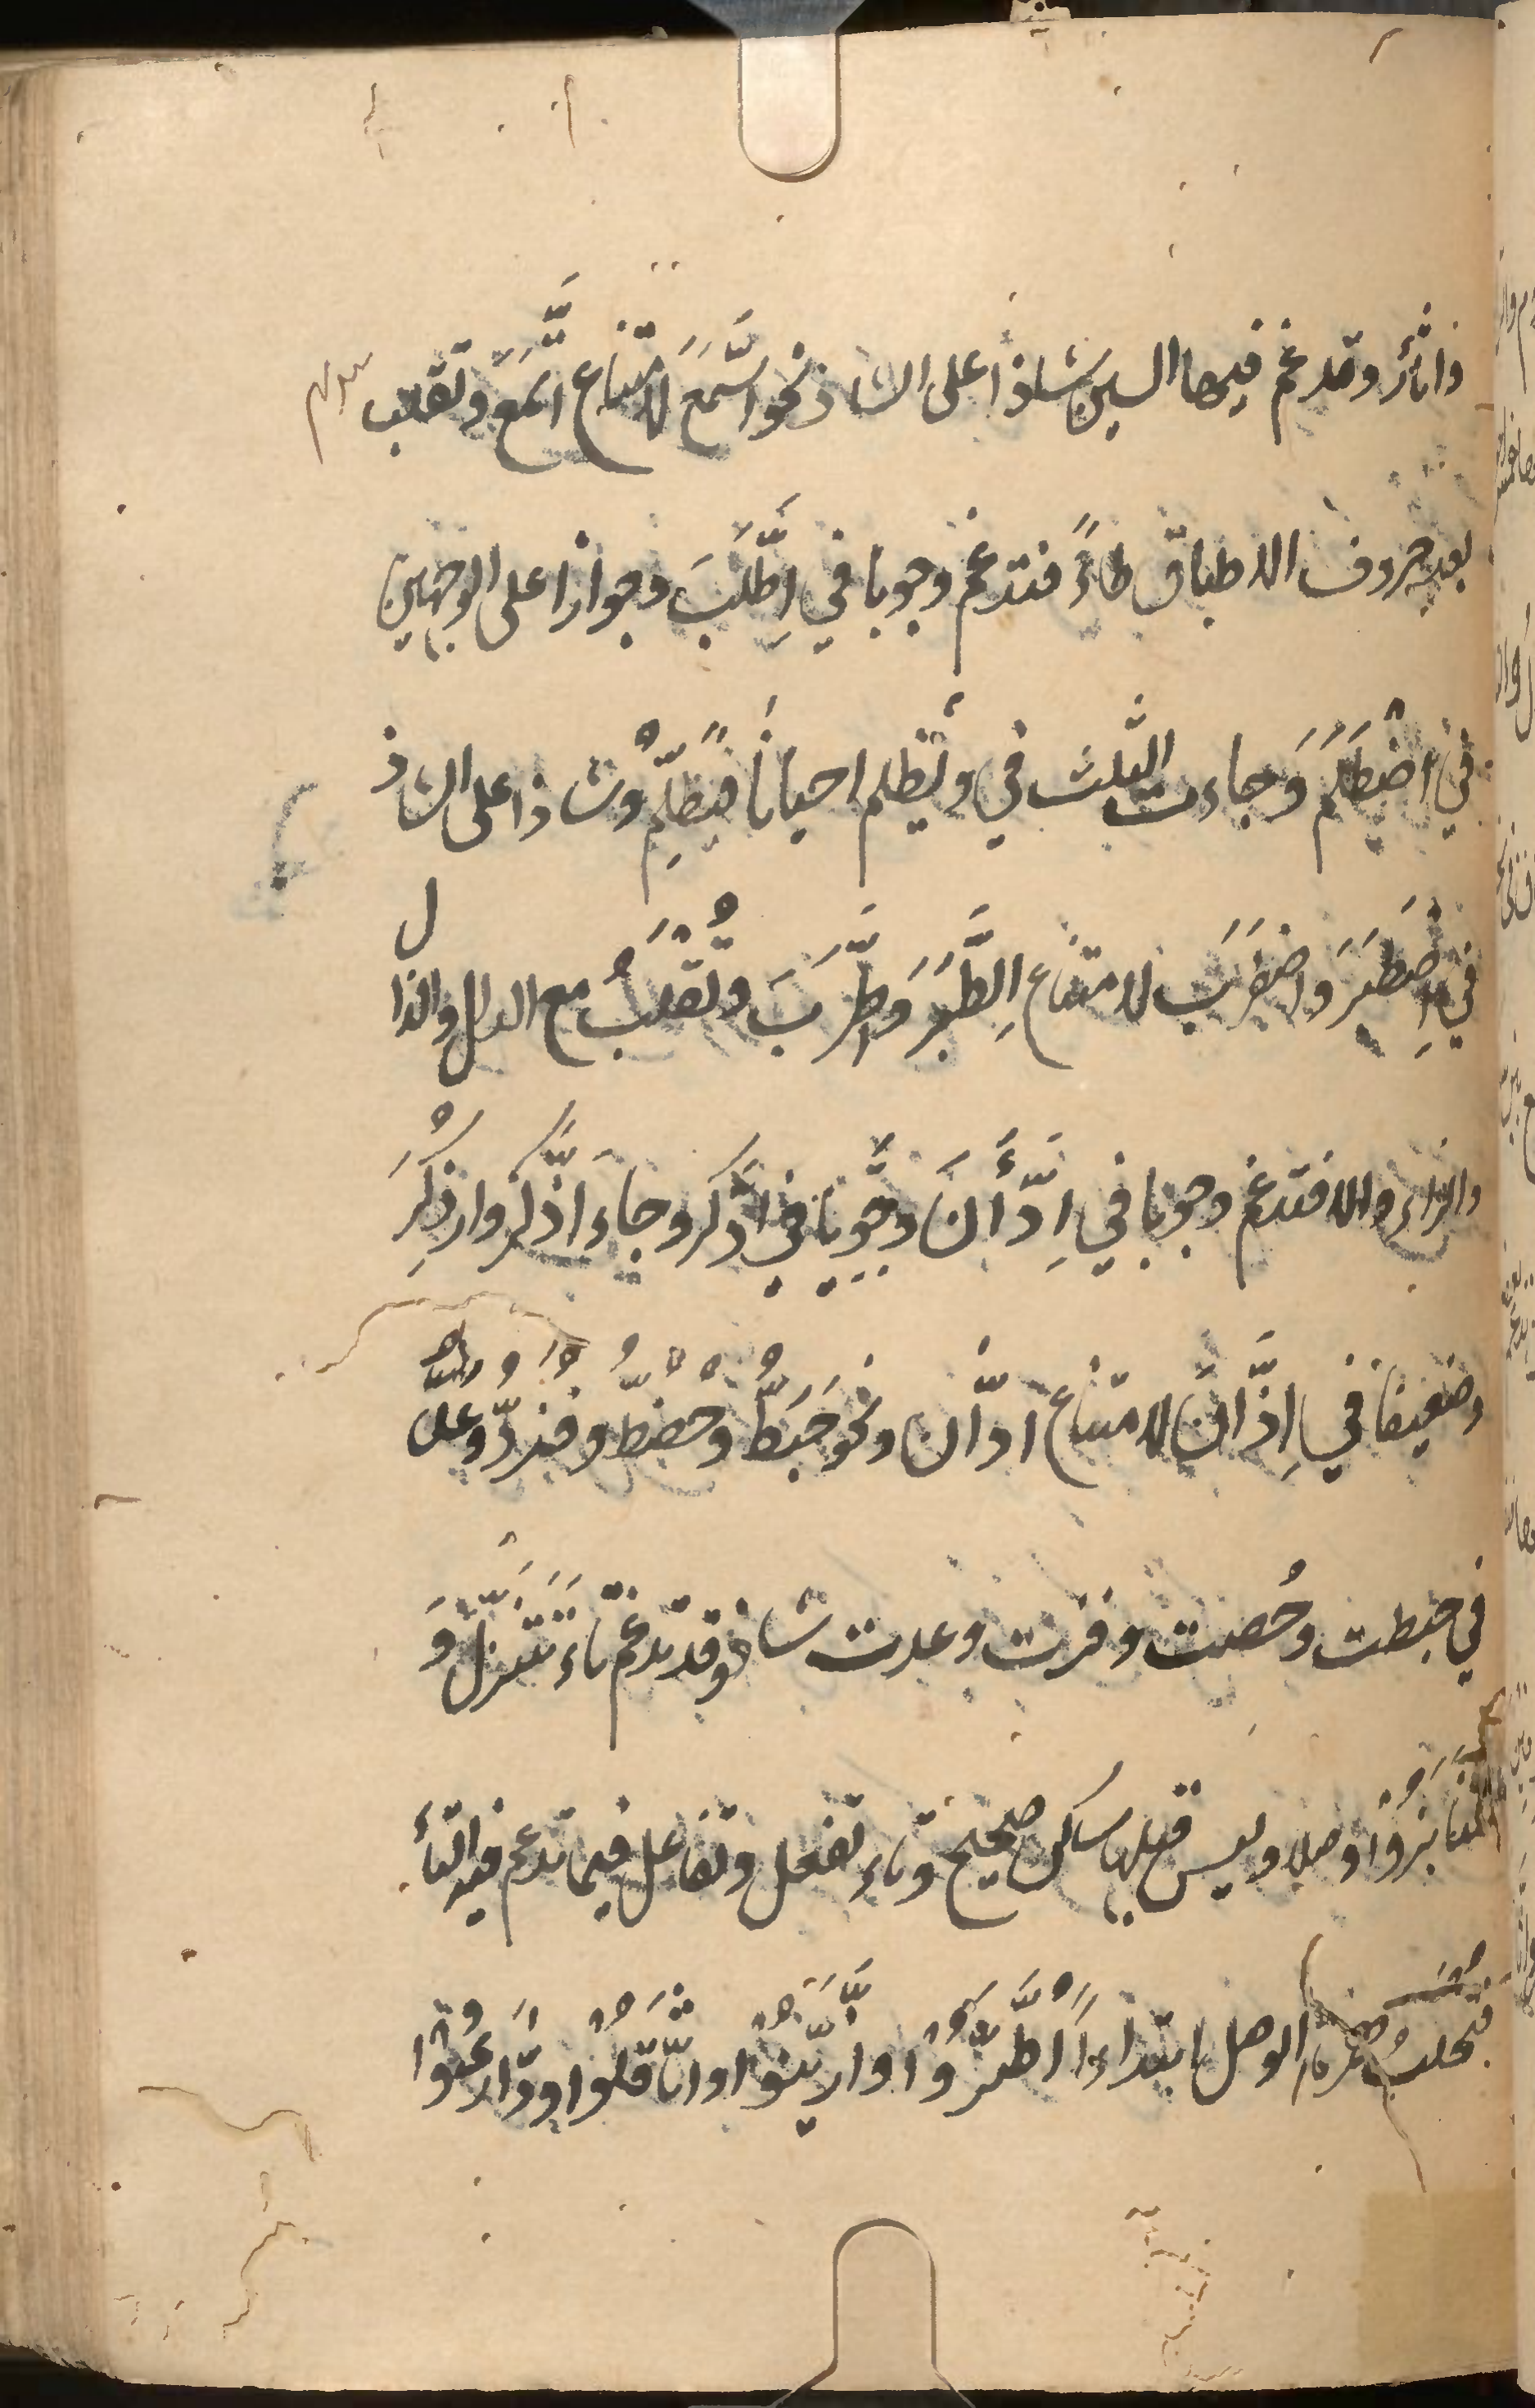 واثأر وتدغم فيها السين شاذا على الشاذ نحو اسَّمَعَ لامتناع اتَّمَعَ وتقلب
بعد حروف الاطباق طاءً فتدغم وجوبا في اِطَّلَبَ وجوازا على الوجهين
في اضْطَلَمَ وَجاءت الثلث في ويُظلم احيانًا فيظَّلِمُ وشاذا على الشاذ
في اِصْطَبَرَ وَاضْطَرَبَ لامتناع اِطَّبَرَ وَاطَّرَبَ وتُقْلَبُ مع الدال والذال
والزاء دالا فتدغم وجوبا في اِدَّأَنَ وقَوِيًّا في ادَّكر وجاءَ اذَّكَرَ واذْدَكَرَ
وضعيفا في اِزَّانَ لامتناع ادَّان ونحو خَبَطُّ وحُصْطُ وفُزْدُ وعُدُّ
في خبطت وحُصت وفزت وعدت شاذ وقد تدغم تاء تَتَنَزَّلُ وَ
تَنَابَزُوْا وصلا وليس قبلها ساكن صحيح وتاء تفعل وتفاعل فيما تدغم فيه التاءُ
فتجلبُ همزة الوصل ابتداءً اطَّيَّرُوْا وازَّيَّنُوْا واثَّاقَلُوْا وادَّارَءُوْا